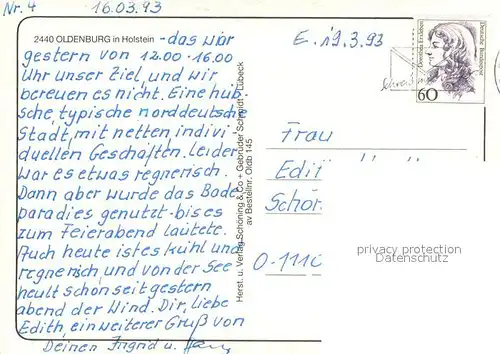 Nr. 4 16.03.93
2440 OLDENBURG in Holstein - das war
gestern von 12.00-16.00
Uhr unser Ziel, und wir
bereuen es nicht. Eine hüb-
sche, typische norddeutsche
Stadt, mit netten indivi-
duellen Geschäften. Leider
war es etwas regnerisch.
Dann aber wurde das Bade-
paradies genutzt - bis es
zum Feierabend läutete.
Auch heute ist es kühl und
regnerich, und von der See
heult schon seit gestern
abend der Wind. Dir, liebe
Edith, ein weiterer Gruß von
Deinen Ingrid u.
Herst. u. Verlag Schöning & Co + Gebrüder Schmidt - Lübeck
av Bestellnr. Oldb 145
E. 19.3.93
Deutsche Bundespost
60
Frau
Edi
Schör
O-1110
privacy protection
Datenschutz